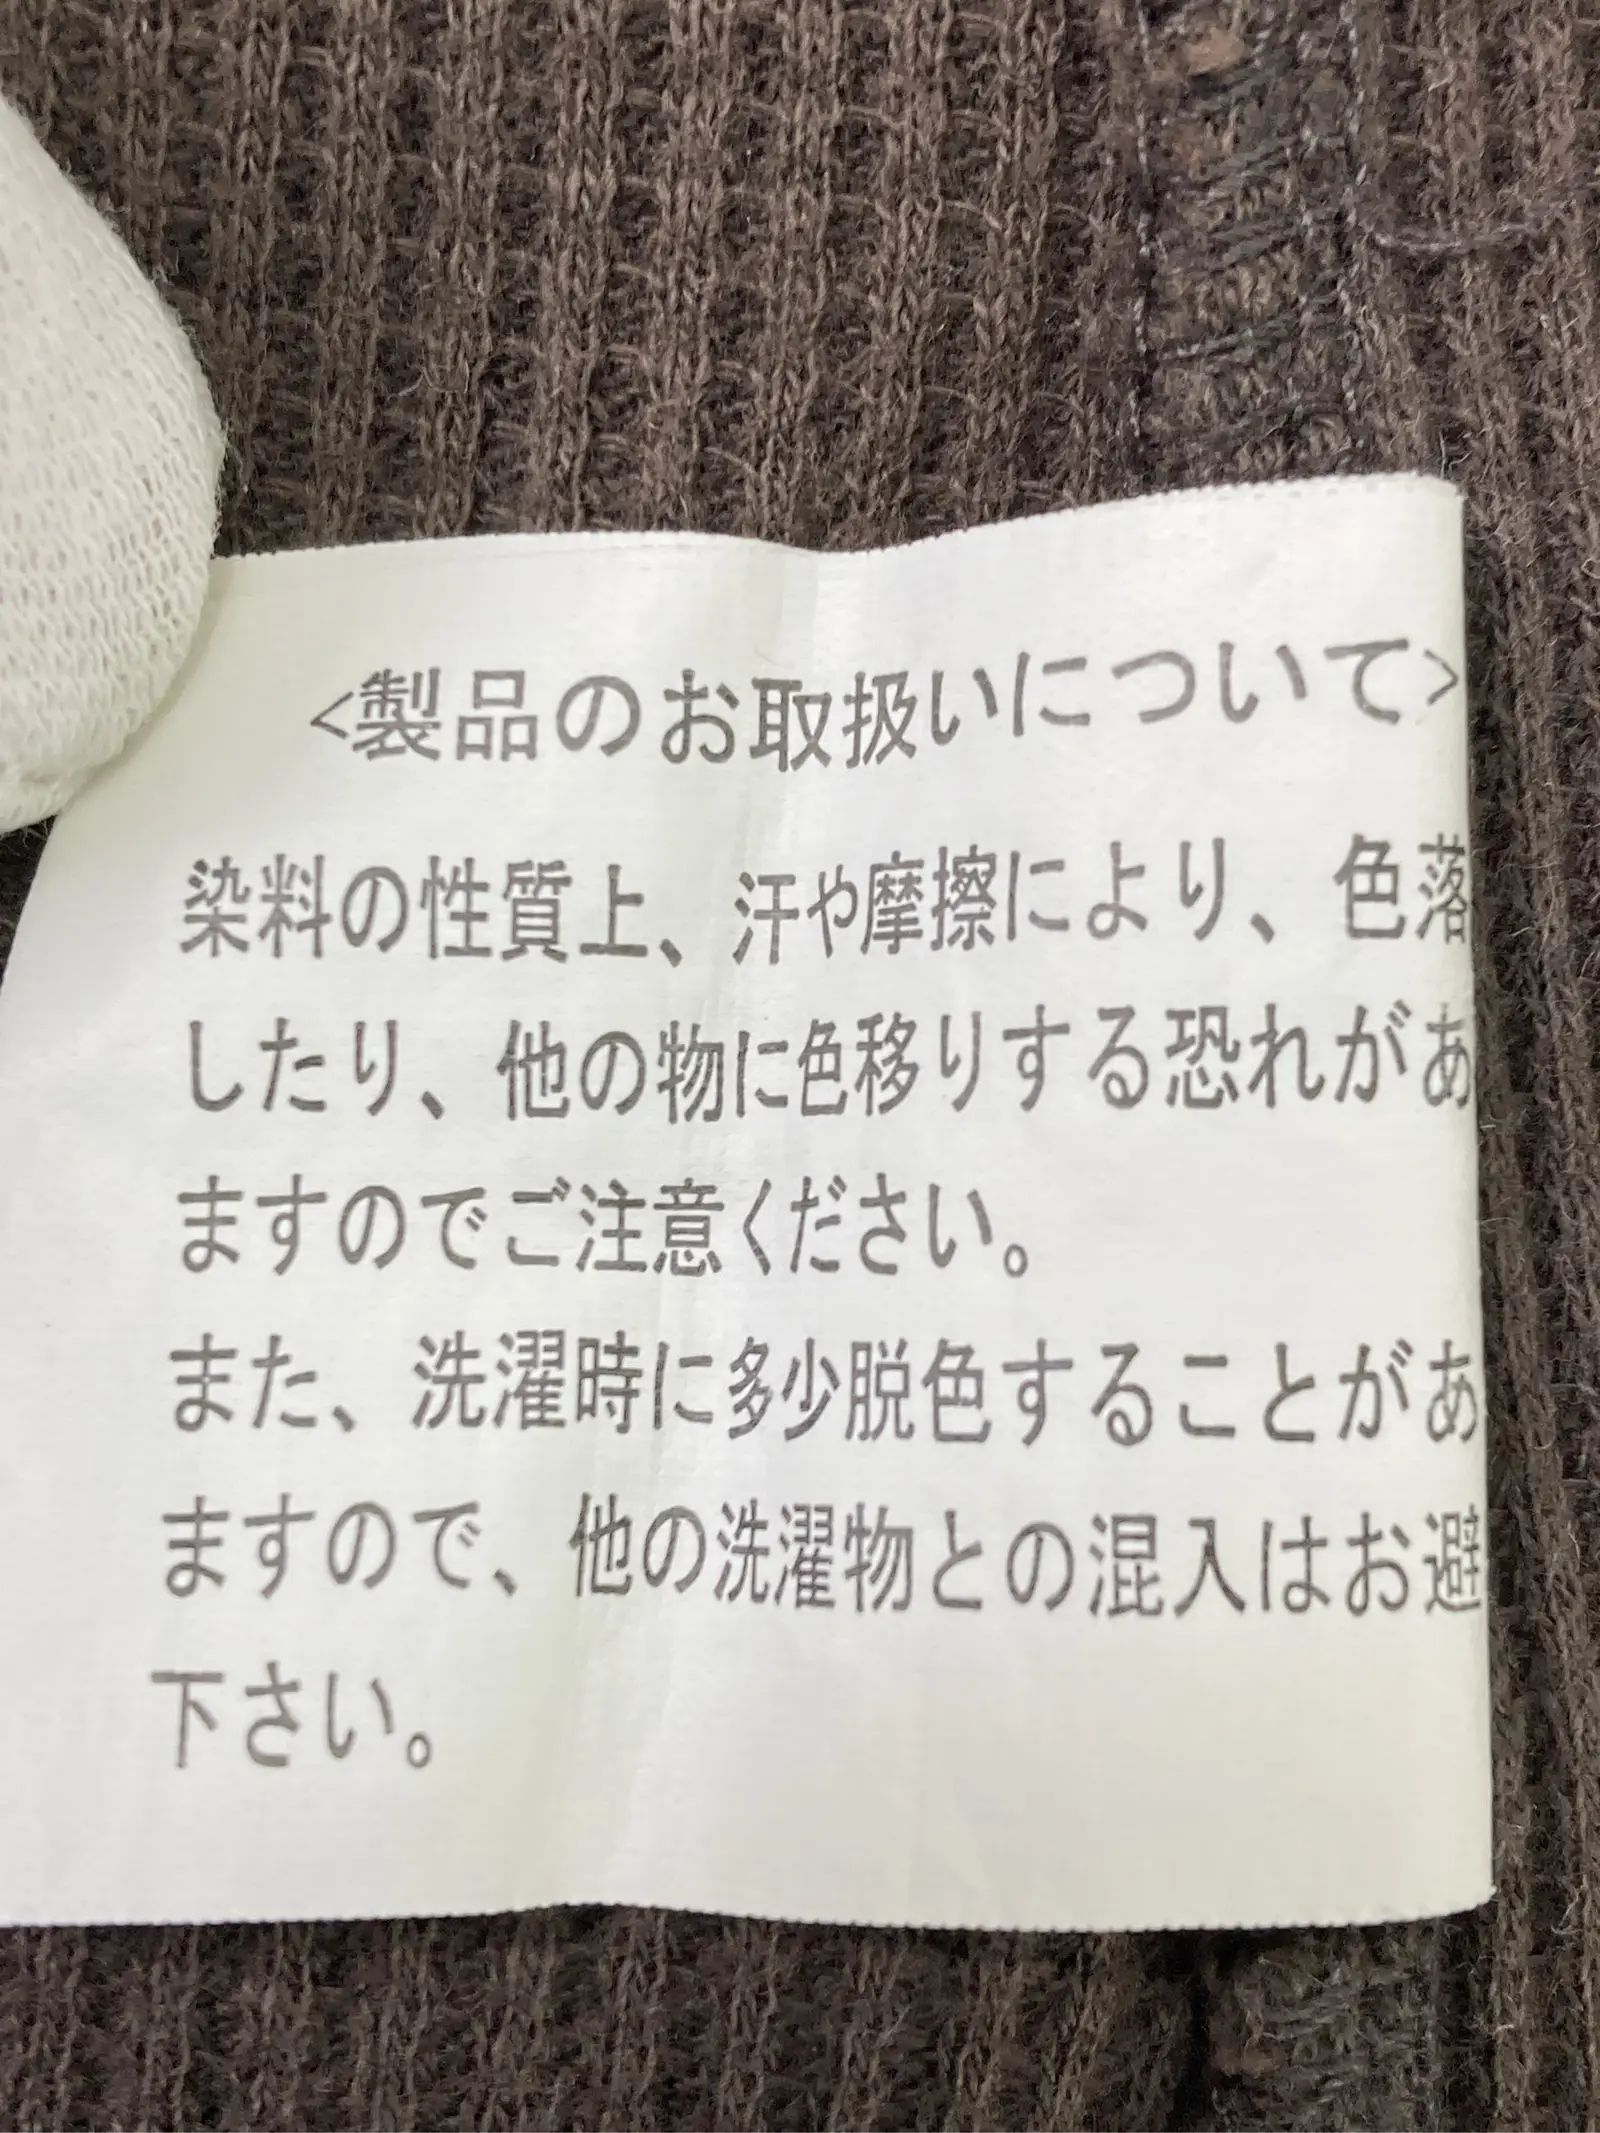 <製品のお取扱いについて>
染料の性質上、汗や摩擦により、色落
したり、他の物に色移りする恐れがあ
ますのでご注意ください。
また、洗濯時に多少脱色することがあ
ますので、他の洗濯物との混入はお避
下さい。